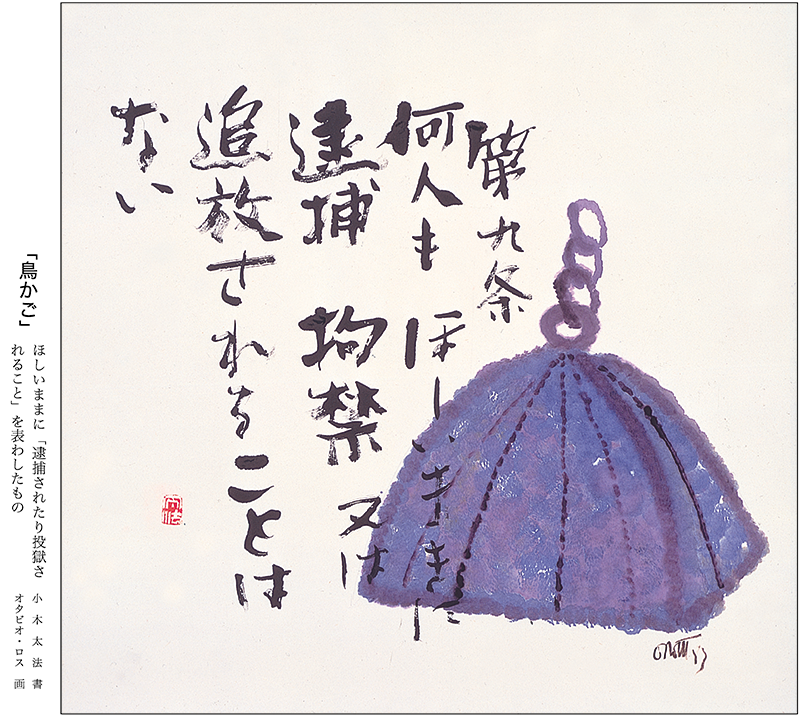 第九条
何人も ほしいままに
逮捕 拘禁 又は
追放されることは
ない
「鳥かご」
ほしいままに「逮捕されたり投獄さ
れること」を表わしたもの
小木太法 書
オタビオ・ロス 画